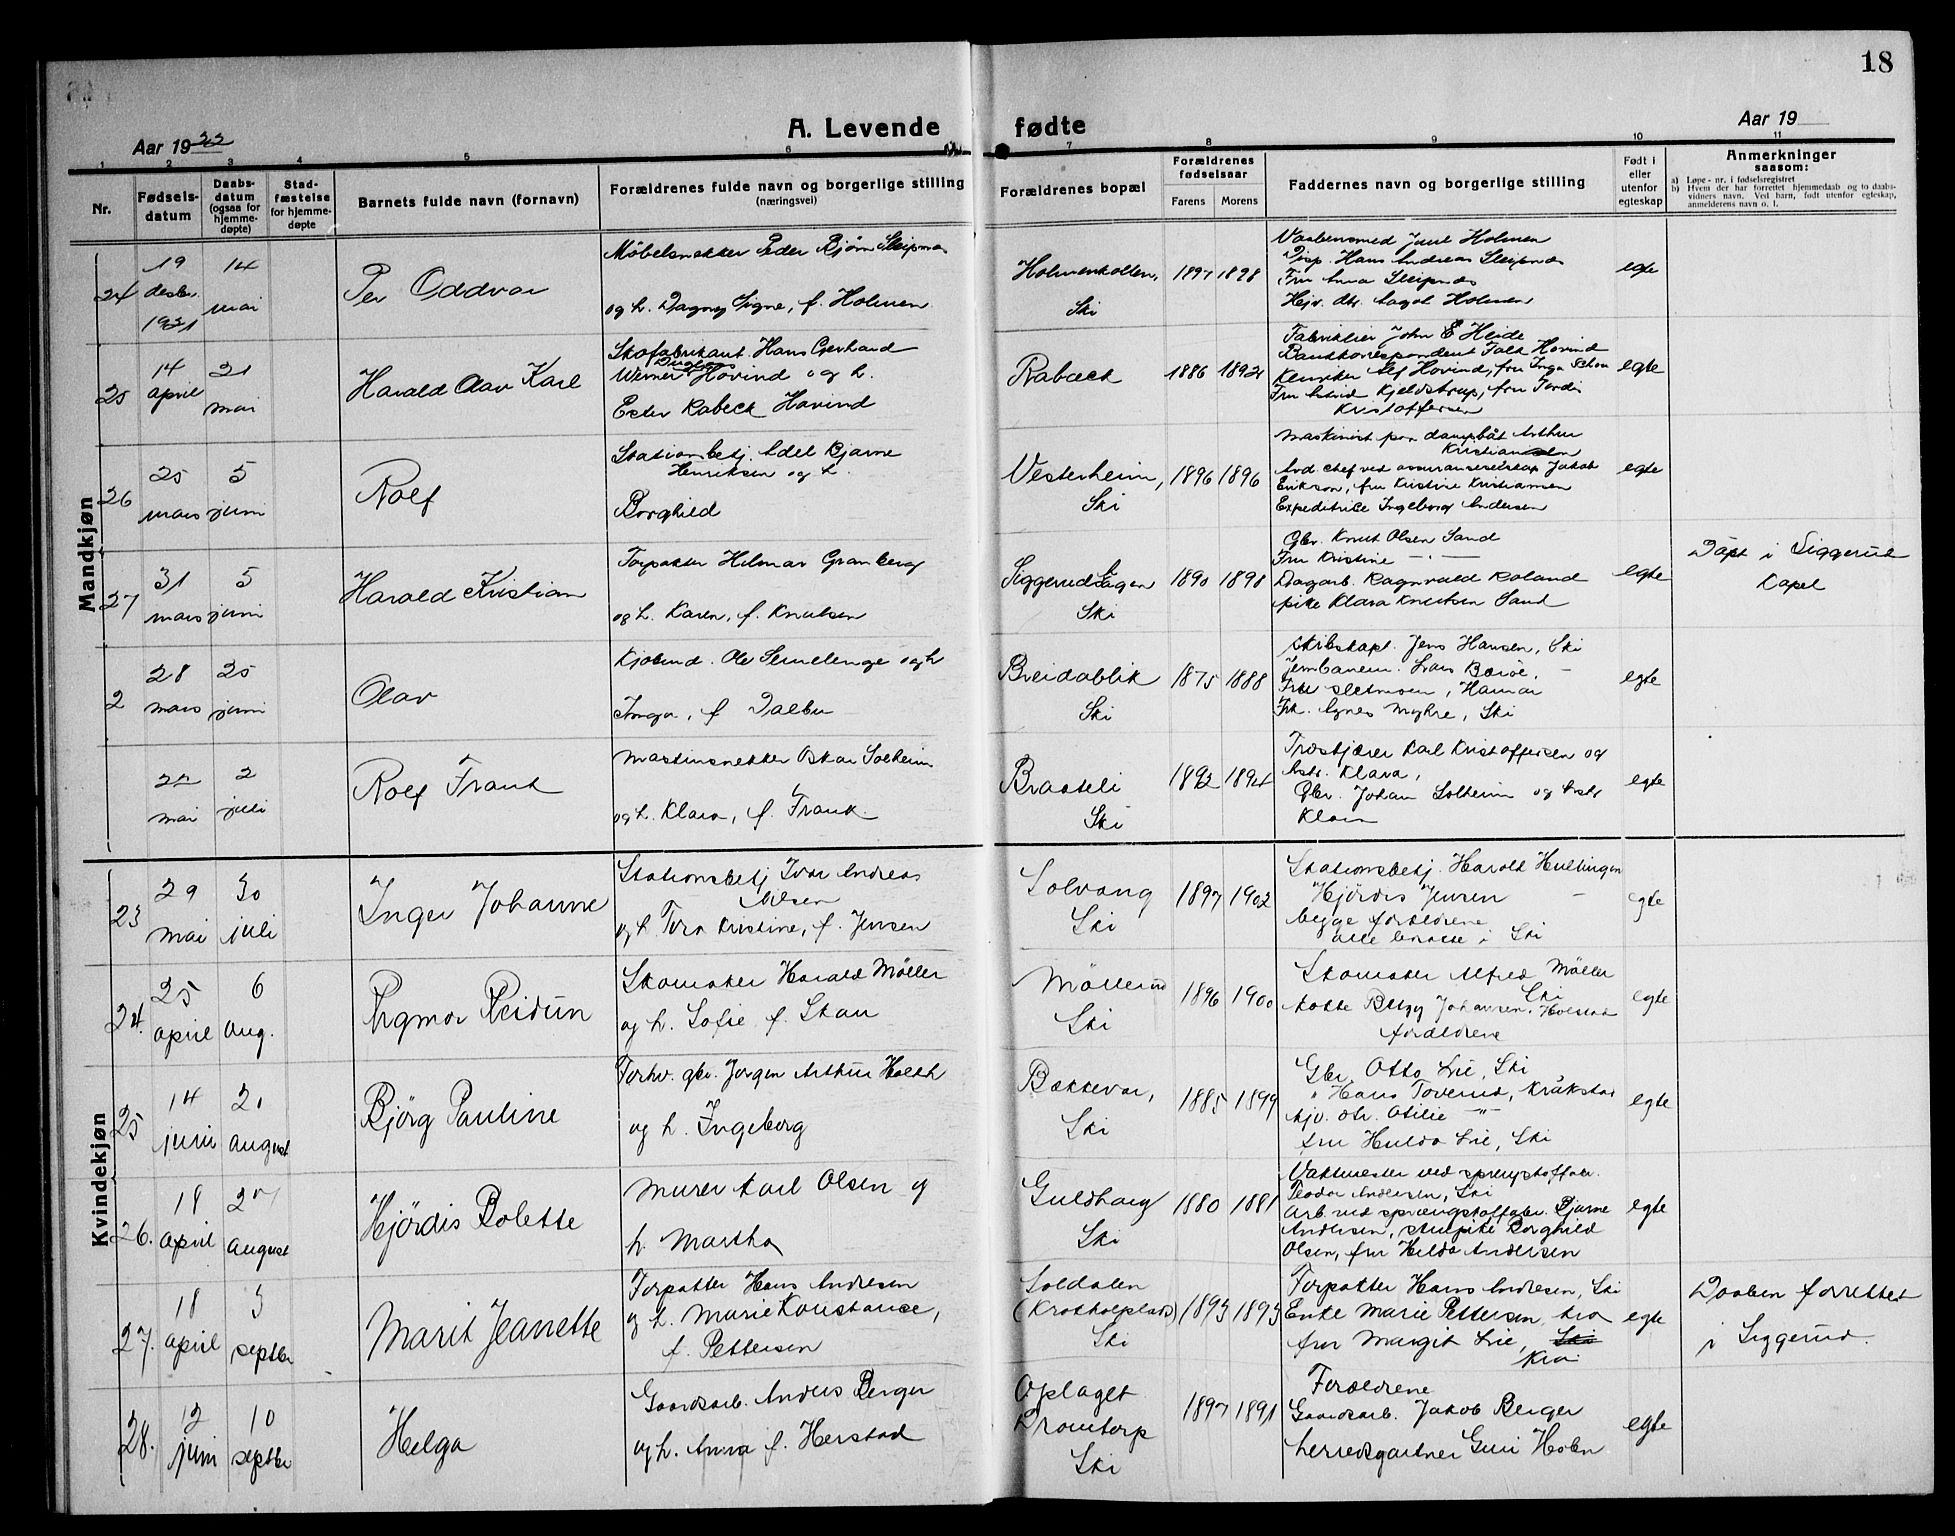 18
A. Levende fødte
Aar 1922
Aar 19
1 2 3 4 5 6 7 8 9 10 11
Nr.
Fødsels-
datum
Daabs-
datum
(ogsaa for
hjemme-
døpte)
Stad-
fæstelse
for hjemme-
døpte
Barnets fulde navn (fornavn)
Forældrenes fulde navn og borgerlige stilling
(næringsvei)
Forældrenes bopæl
Forældrenes
fødselsaar
Farens Morens
Faddernes navn og borgerlige stilling
Født i
eller
utenfor
egteskap
Anmerkninger
saasom:
a) Løpe-nr. i fødselsregistret
b) Hvem der har forrettet hjemmedaab og to daabs-
vidners navn. Ved barn, født utenfor egteskap,
anmelderens navn o. l.
Mandkjøn
24
19
desbr.
1921
14
mai
Per Oddvar
Møbelsnekker Peder Bjørn
og h. Dagny Signe, f. Holmen
Holmenkollen,
Ski
1897 1898
Vaabensmed Juul Holmen
Disp. Hans Andreas
Fru Anna
Hejv. dtr. Aagot Holmen
egte
25
14
april
21
mai
Harald Olav Karl
Skofabrikant Hans Gerhard
Werner Hovind og h.
Ester Rabeck Hovind
Rabæck
1886 1892
Fabrikeier John E Heide
Bankkorrespondent Falk Hovind
Hovind, fru Inga
Fru Astrid Kjeldstrup, fru
Kristoffersen
egte
26
25
mars
5
juni
Rolf
Stationsbetj. Adel Bjarne
Henriksen og h.
Borghild
Vesterheim,
Ski
1896 1896
Maskinist paa dampbåt Arthur
Kristiansen
Avd. chef ved assuranseselskap Jakob
Erikson, fru Kristine Kristiansen
Expeditrice Ingeborg Andersen
egte
27
31
mars
5
juni
Harald Kristian
Forpakter Hilmar Granberg
og h. Karen, f. Knutsen
Siggerud
Ski
1890 1898
Gbr. Knut Olsen Sand
Fru Kristine — " —
Dagarb. Ragnvald Roland
pike Klara Knutsen Sand
egte
Døpt i Siggerud
Kapel
2
28
mars
25
juni
Olav
Kjøbmd. Ole Semelenge og h
Inga, f Dalby
Breidablik
Ski
1875 1888
Skibskapt. Jens Hansen, Ski
Jernbanem. Lars
, Hamar
Frk. Agnes Myhre, Ski
egte
22
mai
2
juli
Rolf Frank
Maskinsnekker Oskar Solheim
og h. Klara, f. Frank.
Braateli
Ski
1892 1894
Træskjærer Karl Kristoffersen og
hstr. Klara,
Gbr. Johan Solheim og hstr
Klara
egte
Kvindekjøn
23
29
mai
30
juli
Inger Johanne
Stationsbetj Ivar Andreas
Nilsen
og h Tora Kristine, f. Jensen
Solvang
Ski
1897 1902
Stationsbetj. Harald Hullingen
Hjørdis Jensen —
begge forældrene
alle bosatte i Ski
egte
24.
25
april
6
aug.
Ragmor Reidun
Skomaker Harald Møller
og h. Sofie f. Skau
Møllerud
Ski
1896 1900
Skomaker Alfred Møller
Ski
Johansen,
forældrene
egte
25
14
juni
20
august
Bjørg Pauline
Forhv. gbr. Jørgen Arthur Holth
og h. Ingeborg
Bækkevar,
Ski
1885 1899
Gbr Otto Lie, Ski
" Hans Toverud, Kråkstad
hjv. dtr. Otilie — " —
fru Hulda Lie, Ski
egte
26.
18
april
27
august
Hjördis Bolette
Murer Karl Olsen og
h. Martha
Guldhaug
Ski
1880 1881
Vaktmester ved sprengstoffabr.
Teodor Andersen, Ski
Arb. ved sprængstoffabr. Bjarne
Andersen, Borghild
Olsen, fru Hilda Andersen
egte
27.
18
april
3
septbr
Marit Jeanette
Forpakter Hans Andresen
og h. Marie Konstance,
f. Pettersen
Soldalen
(Krokholplads)
Ski
1893 1893
Forpakter Hans Andresen, Ski
Enke Marie Pettersen, Kra
fru Margit Lie, Ski
Kra
egte
Daaben forrettet
i Siggerud.
28.
12
juni
10
septbr
Helga
Gaardsarb. Anders Berger
og h. Anna f. Herstad
Oplaget
Drømtorp
Ski
1897 1891
Forældrene
Gaardsarb. Jakob Berger
herredsgartner Guri Holen
egte